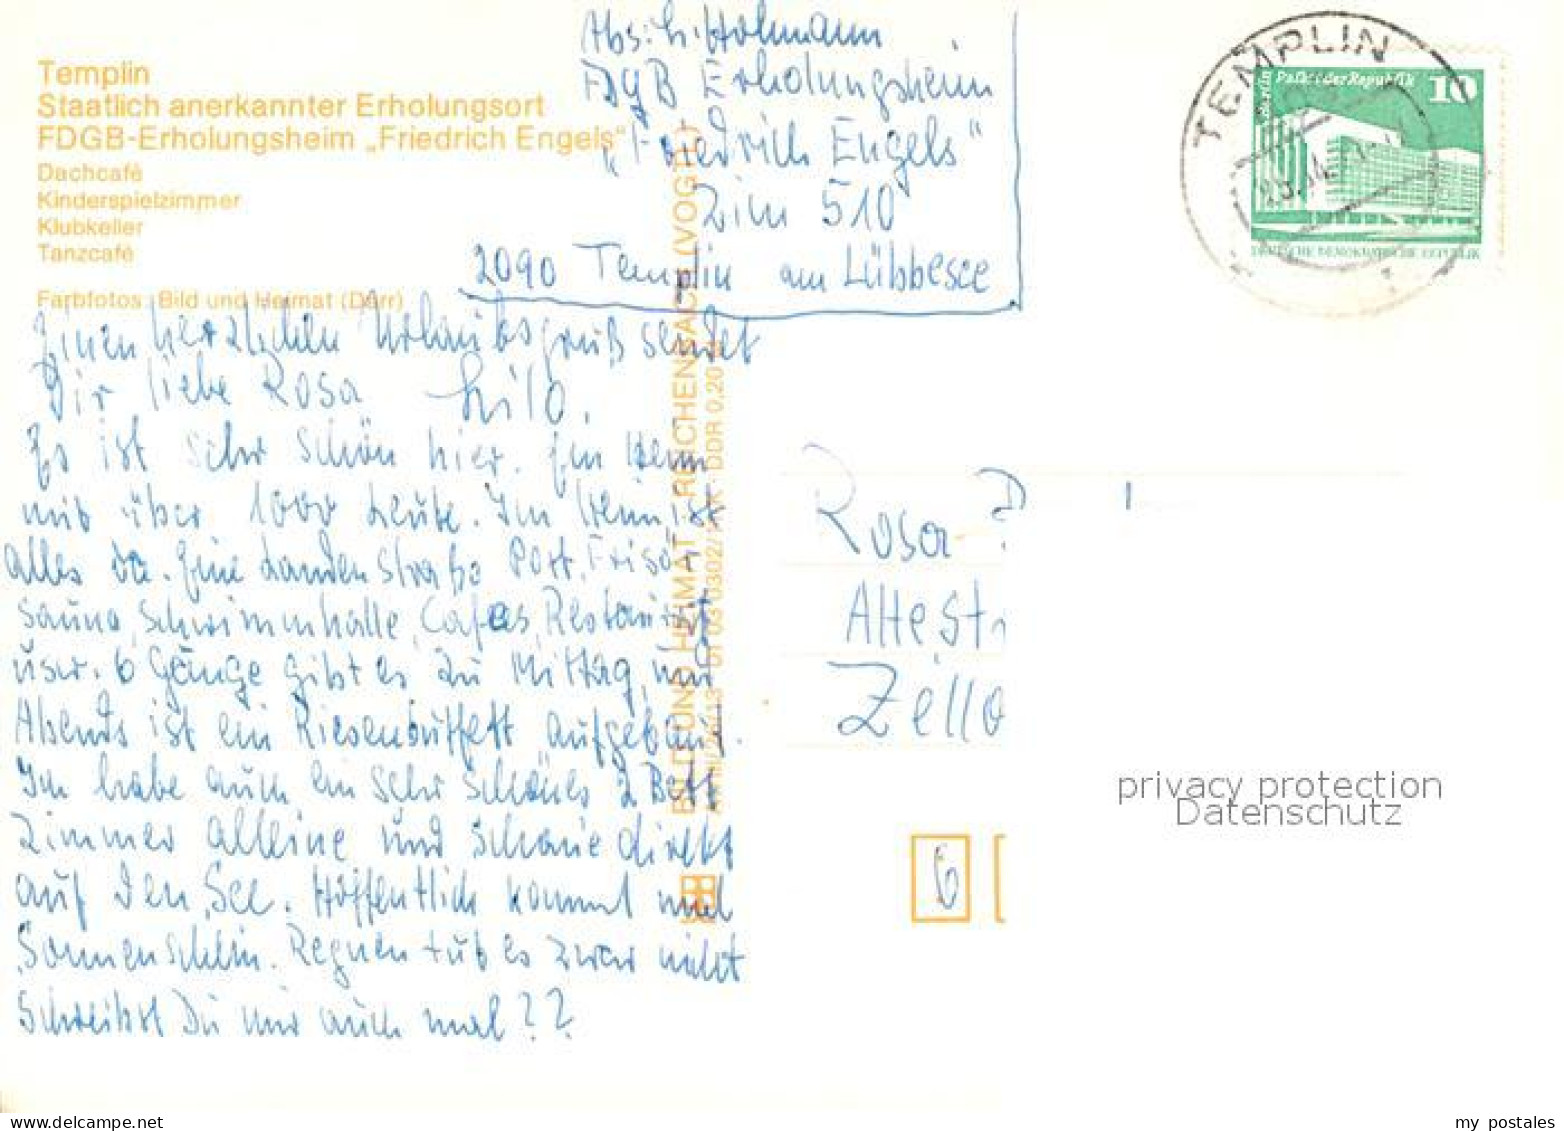 Templin
Staatlich anerkannter Erholungsort
FDGB-Erholungsheim „Friedrich Engels"
Dachcafé
Kinderspielzimmer
Klubkeller
Tanzcafé
Farbfotos: Bild und Heimat (Dörr)
Abs: h. Hohmann
FDGB Erholungsheim
„Friedrich Engels"
Zim 510
2090 Templin am Lübbesee
Einen herzlichen Urlaubsgruß sendet
Dir liebe Rosa
Es ist sehr schön hier. Ein Heim
mit über 1000 Leute. Im Heim ist
alles da. Eine Ladenstraße Post, Frisör
Sauna, Schwimmhalle, Cafees, Restaurant
usw. 6 Gänge gibt es zu Mittag, und
Abends ist ein Riesenbuffett aufgebaut.
Ich habe auch ein sehr schönes 2 Bett
Zimmer alleine und schaue direkt
auf den See. Hoffentlich kommt mal
Sonnenschein. Regnen tut es zwar nicht
Schreibst Du mir auch mal??
BILD UND HEIMAT REICHENBACH (VOGTL)
DDR 0,20
TEMPLIN
Berlin Palast der Republik 10
DEUTSCHE DEMOKRATISCHE REPUBLIK
Rosa
Alte Str
Zella
6
privacy protection
Datenschutz
my postales